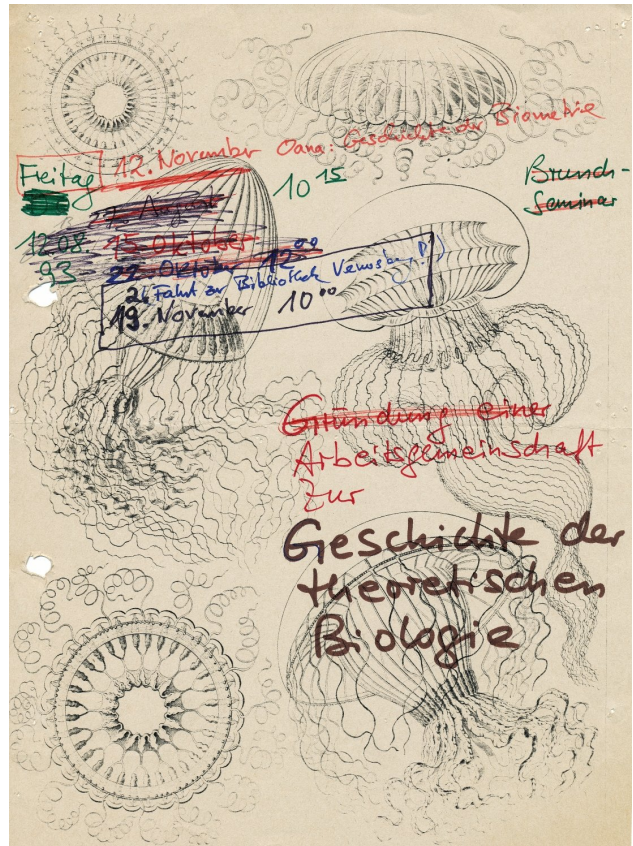 12. November Oana: Geschichte der Biometrie
Freitag
10 15
Brunch-
Seminar
August
12.08.
93
15. Oktober
22. Oktober 12 00
Fahrt zur Bibliothek
19. November 10 00
Gründung einer
Arbeitsgemeinschaft
zur
Geschichte der
theoretischen
Biologie